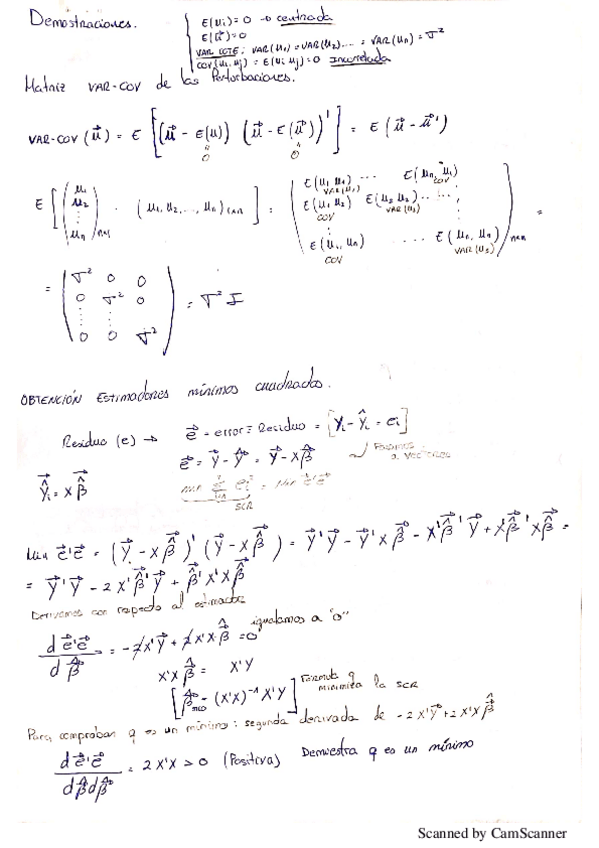 Demostraciones. { E(ui)=0 → centrada
E(u⃗)=0
VAR CTE: VAR(u1)=VAR(u2)...=VAR(un)=σ²
COV(ui,uj)=E(ui uj)=0 Incorrelada
Matriz VAR-COV de las Perturbaciones.
VAR-COV(u⃗) = E[(u⃗ - E(u)) (u⃗ - E(u⃗))'] = E(u⃗ - u⃗')
0 0
E[(u1 u2 ⋮ un)nx1 · (u1, u2, ..., un)1xn] = (E(u1 u1) ... E(un, u1)
VAR(u1) COV
E(u1 u2) E(u2 u2) ...
COV VAR(u2)
E(u1, un) .... E(un, un))nxn =
COV VAR(us)
= (σ² 0 0
0 σ² 0
⋮ ⋮
0 0 σ²) = σ² I
OBTENCIÓN Estimadores mínimos cuadrados.
Residuo (e) → e⃗ = error = Residuo = [Yi - Ŷi = ei]
Pasamos a vectores
e⃗ = Y⃗ - Ŷ⃗ = Y⃗ - Xβ̂⃗
Ŷ⃗i = Xβ̂⃗
Min Σ ei² = Min e⃗'e⃗
SCR
Min e⃗'e⃗ = (Y⃗ - Xβ̂⃗)' (Y⃗ - Xβ̂⃗) = Y⃗'Y⃗ - Y⃗'Xβ̂⃗ - X'β̂⃗'Y⃗ + X'β̂⃗'Xβ̂⃗ =
= Y⃗'Y⃗ - 2X'β̂⃗'Y⃗ + β̂⃗'X'Xβ̂⃗
Derivamos con respecto al estimador
d e⃗'e⃗ / dβ̂ = -2X'Y⃗ + 2X'Xβ̂⃗ = 0 igualamos a "0"
X'Xβ̂⃗ = X'Y
[β̂MCO = (X'X)⁻¹X'Y] Formula q minimiza la SCR
Para comprobar q es un mínimo: segunda derivada de -2X'Y⃗+2X'Xβ̂⃗
d e⃗'e⃗ / dβ̂dβ̂ = 2X'X > 0 (Positiva) Demuestra q es un mínimo
Scanned by CamScanner